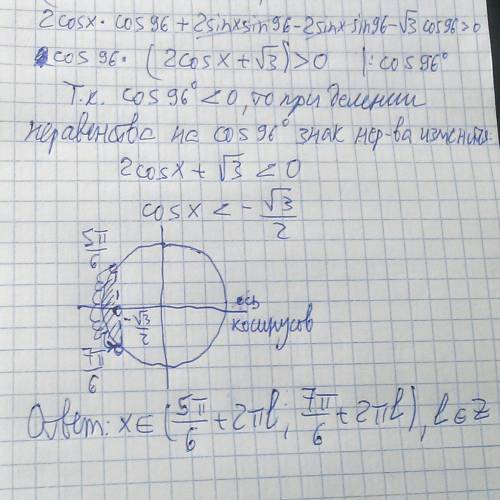 2cosx · cos96 + 2sinx sin96 - 2sinx sin96 - √3 cos96 > 0
cos96 · (2cosx + √3) > 0 |: cos96°
Т.к. cos96° < 0, то при делении
неравенства на cos96° знак нер-ва изменится
2cosx + √3 < 0
cosx < - √3/2
5π/6
ось
косинусов
- √3/2
7π/6
Ответ: x ∈ (5π/6 + 2πl; 7π/6 + 2πl), l ∈ Z